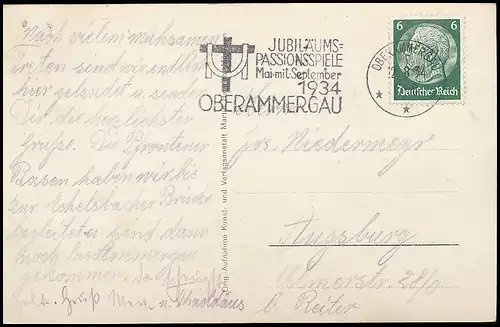 Nach vielem mühsamen
Treten sind wir endlich
hier gelandet u. senden
Dir die herzlichsten
Grüße. Die
Basen haben wir bis
zur Echelsbacher Brücke
begleitet u. sind dann
noch bis
gekommen.
Gruß
JUBILÄUMS=
PASSIONSSPIELE
Mai mit September
1934
OBERAMMERGAU
OBERAMMERGAU
6 6
Deutsches Reich
Orig.-Aufnahme Kunst- und Verlagsanstalt
Jos. Niedermeyr
Augsburg
28/0
b. Reiter